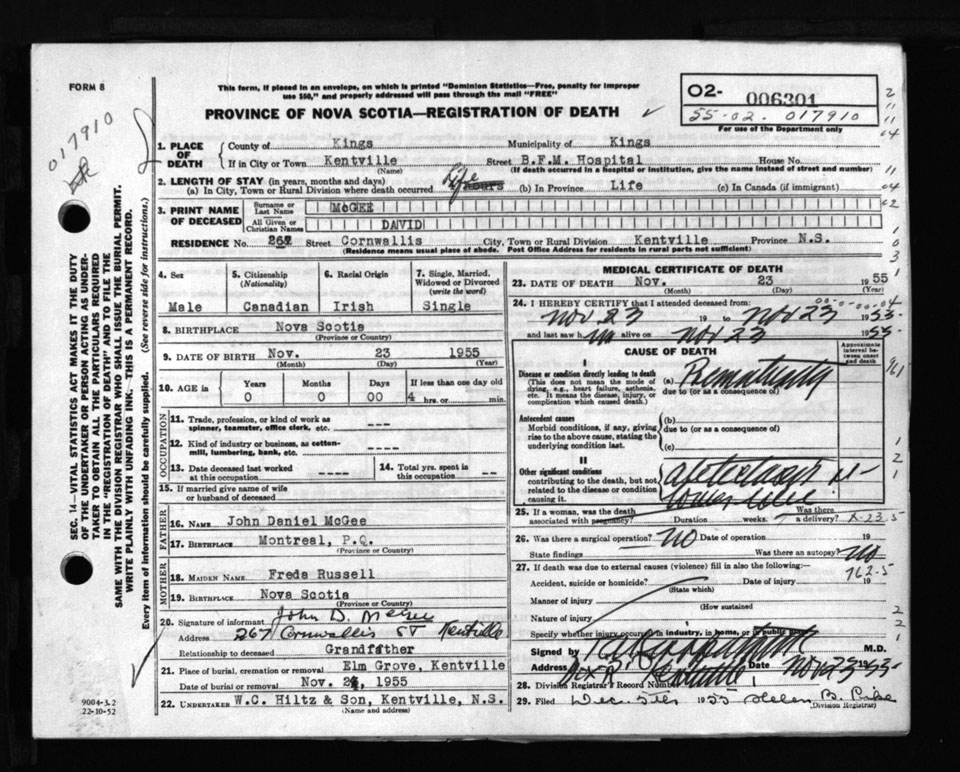 FORM 8
This form, if placed in an envelope, on which is printed "Dominion Statistics—Free, penalty for improper
use $50," and properly addressed will pass through the mail "FREE"
PROVINCE OF NOVA SCOTIA—REGISTRATION OF DEATH
O2- 006301
55-02. 017910
For use of the Department only
017910
1. PLACE OF DEATH
County of Kings Municipality of Kings
If in City or Town Kentville Street B.F.M. Hospital House No.
(Name) (If death occurred in a hospital or institution, give the name instead of street and number)
2. LENGTH OF STAY (in years, months and days)
(a) In City, Town or Rural Division where death occurred Life hours (b) In Province Life (c) In Canada (if immigrant)
3. PRINT NAME OF DECEASED
Surname or Last Name McGEE
All Given or Christian Names DAVID
RESIDENCE No. 267 Street Cornwallis City, Town or Rural Division Kentville Province N.S.
(Residence means usual place of abode. Post Office Address for residents in rural parts not sufficient)
4. Sex 5. Citizenship (Nationality) 6. Racial Origin 7. Single, Married, Widowed or Divorced (write the word)
Male Canadian Irish Single
8. BIRTHPLACE Nova Scotia
(Province or Country)
9. DATE OF BIRTH Nov. 23 1955
(Month) (Day) (Year)
10. AGE in Years Months Days If less than one day old
0 0 00 4 hrs. or min.
OCCUPATION
11. Trade, profession, or kind of work as spinner, teamster, office clerk, etc. ---
12. Kind of industry or business, as cotton-mill, lumbering, bank, etc. ---
13. Date deceased last worked at this occupation ---- 14. Total yrs. spent in this occupation --
15. If married give name of wife or husband of deceased
FATHER
16. NAME John Daniel McGee
17. BIRTHPLACE Montreal, P.Q.
(Province or Country)
MOTHER
18. MAIDEN NAME Freda Russell
19. BIRTHPLACE Nova Scotia
(Province or Country)
20. Signature of informant John D. McGee
Address 267 Cornwallis ST Kentville
Relationship to deceased Grandfather
21. Place of burial, cremation or removal Elm Grove, Kentville
Date of burial or removal Nov. 24, 1955
22. UNDERTAKER W.C. Hiltz & Son, Kentville, N.S.
(Name and address)
MEDICAL CERTIFICATE OF DEATH
23. DATE OF DEATH Nov. 23 1955
(Month) (Day) (Year)
24. I HEREBY CERTIFY that I attended deceased from:
Nov 23 19 to Nov 23 1955
and last saw h alive on Nov 23 1955
CAUSE OF DEATH
Approximate interval between onset and death
I
Disease or condition directly leading to death
(This does not mean the mode of dying, e.g., heart failure, asthenia, etc. It means the disease, injury, or complication which caused death.)
(a) Prematurity
due to (or as a consequence of)
Antecedent causes
Morbid conditions, if any, giving rise to the above cause, stating the underlying condition last.
(b)
due to (or as a consequence of)
(c)
II
Other significant conditions
contributing to the death, but not related to the disease or condition causing it.
25. If a woman, was the death associated with pregnancy? Duration weeks. Was there a delivery?
26. Was there a surgical operation? NO Date of operation 19
State findings Was there an autopsy? NO
27. If death was due to external causes (violence) fill in also the following:—
762-5
Accident, suicide or homicide? Date of injury 19
(State which)
Manner of injury
(How sustained
Nature of injury
Specify whether injury occurred in industry, in home, or in public place
Signed by M.D.
Address Box Kentville Date Nov 23 1955
28. Division Registrar's Record Number
29. Filed Dec 5th 1955 Helen B.
(Division Registrar)
SEC. 14—VITAL STATISTICS ACT MAKES IT THE DUTY
OF THE UNDERTAKER OR PERSON ACTING AS UNDER-
TAKER TO OBTAIN ALL THE PARTICULARS REQUIRED
IN THE "REGISTRATION OF DEATH" AND TO FILE THE
SAME WITH THE DIVISION REGISTRAR WHO SHALL ISSUE THE BURIAL PERMIT.
WRITE PLAINLY WITH UNFADING INK. THIS IS A PERMANENT RECORD.
Every item of information should be carefully supplied. (See reverse side for instructions.)
9004-3.2
22-10-52